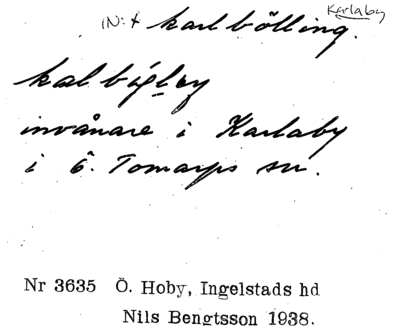 Karlaby
IN: + karl bölling.
kal bígley
invånare i Karlaby
i Ö. Tomarps sn.
Nr 3635 Ö. Hoby, Ingelstads hd
Nils Bengtsson 1938.